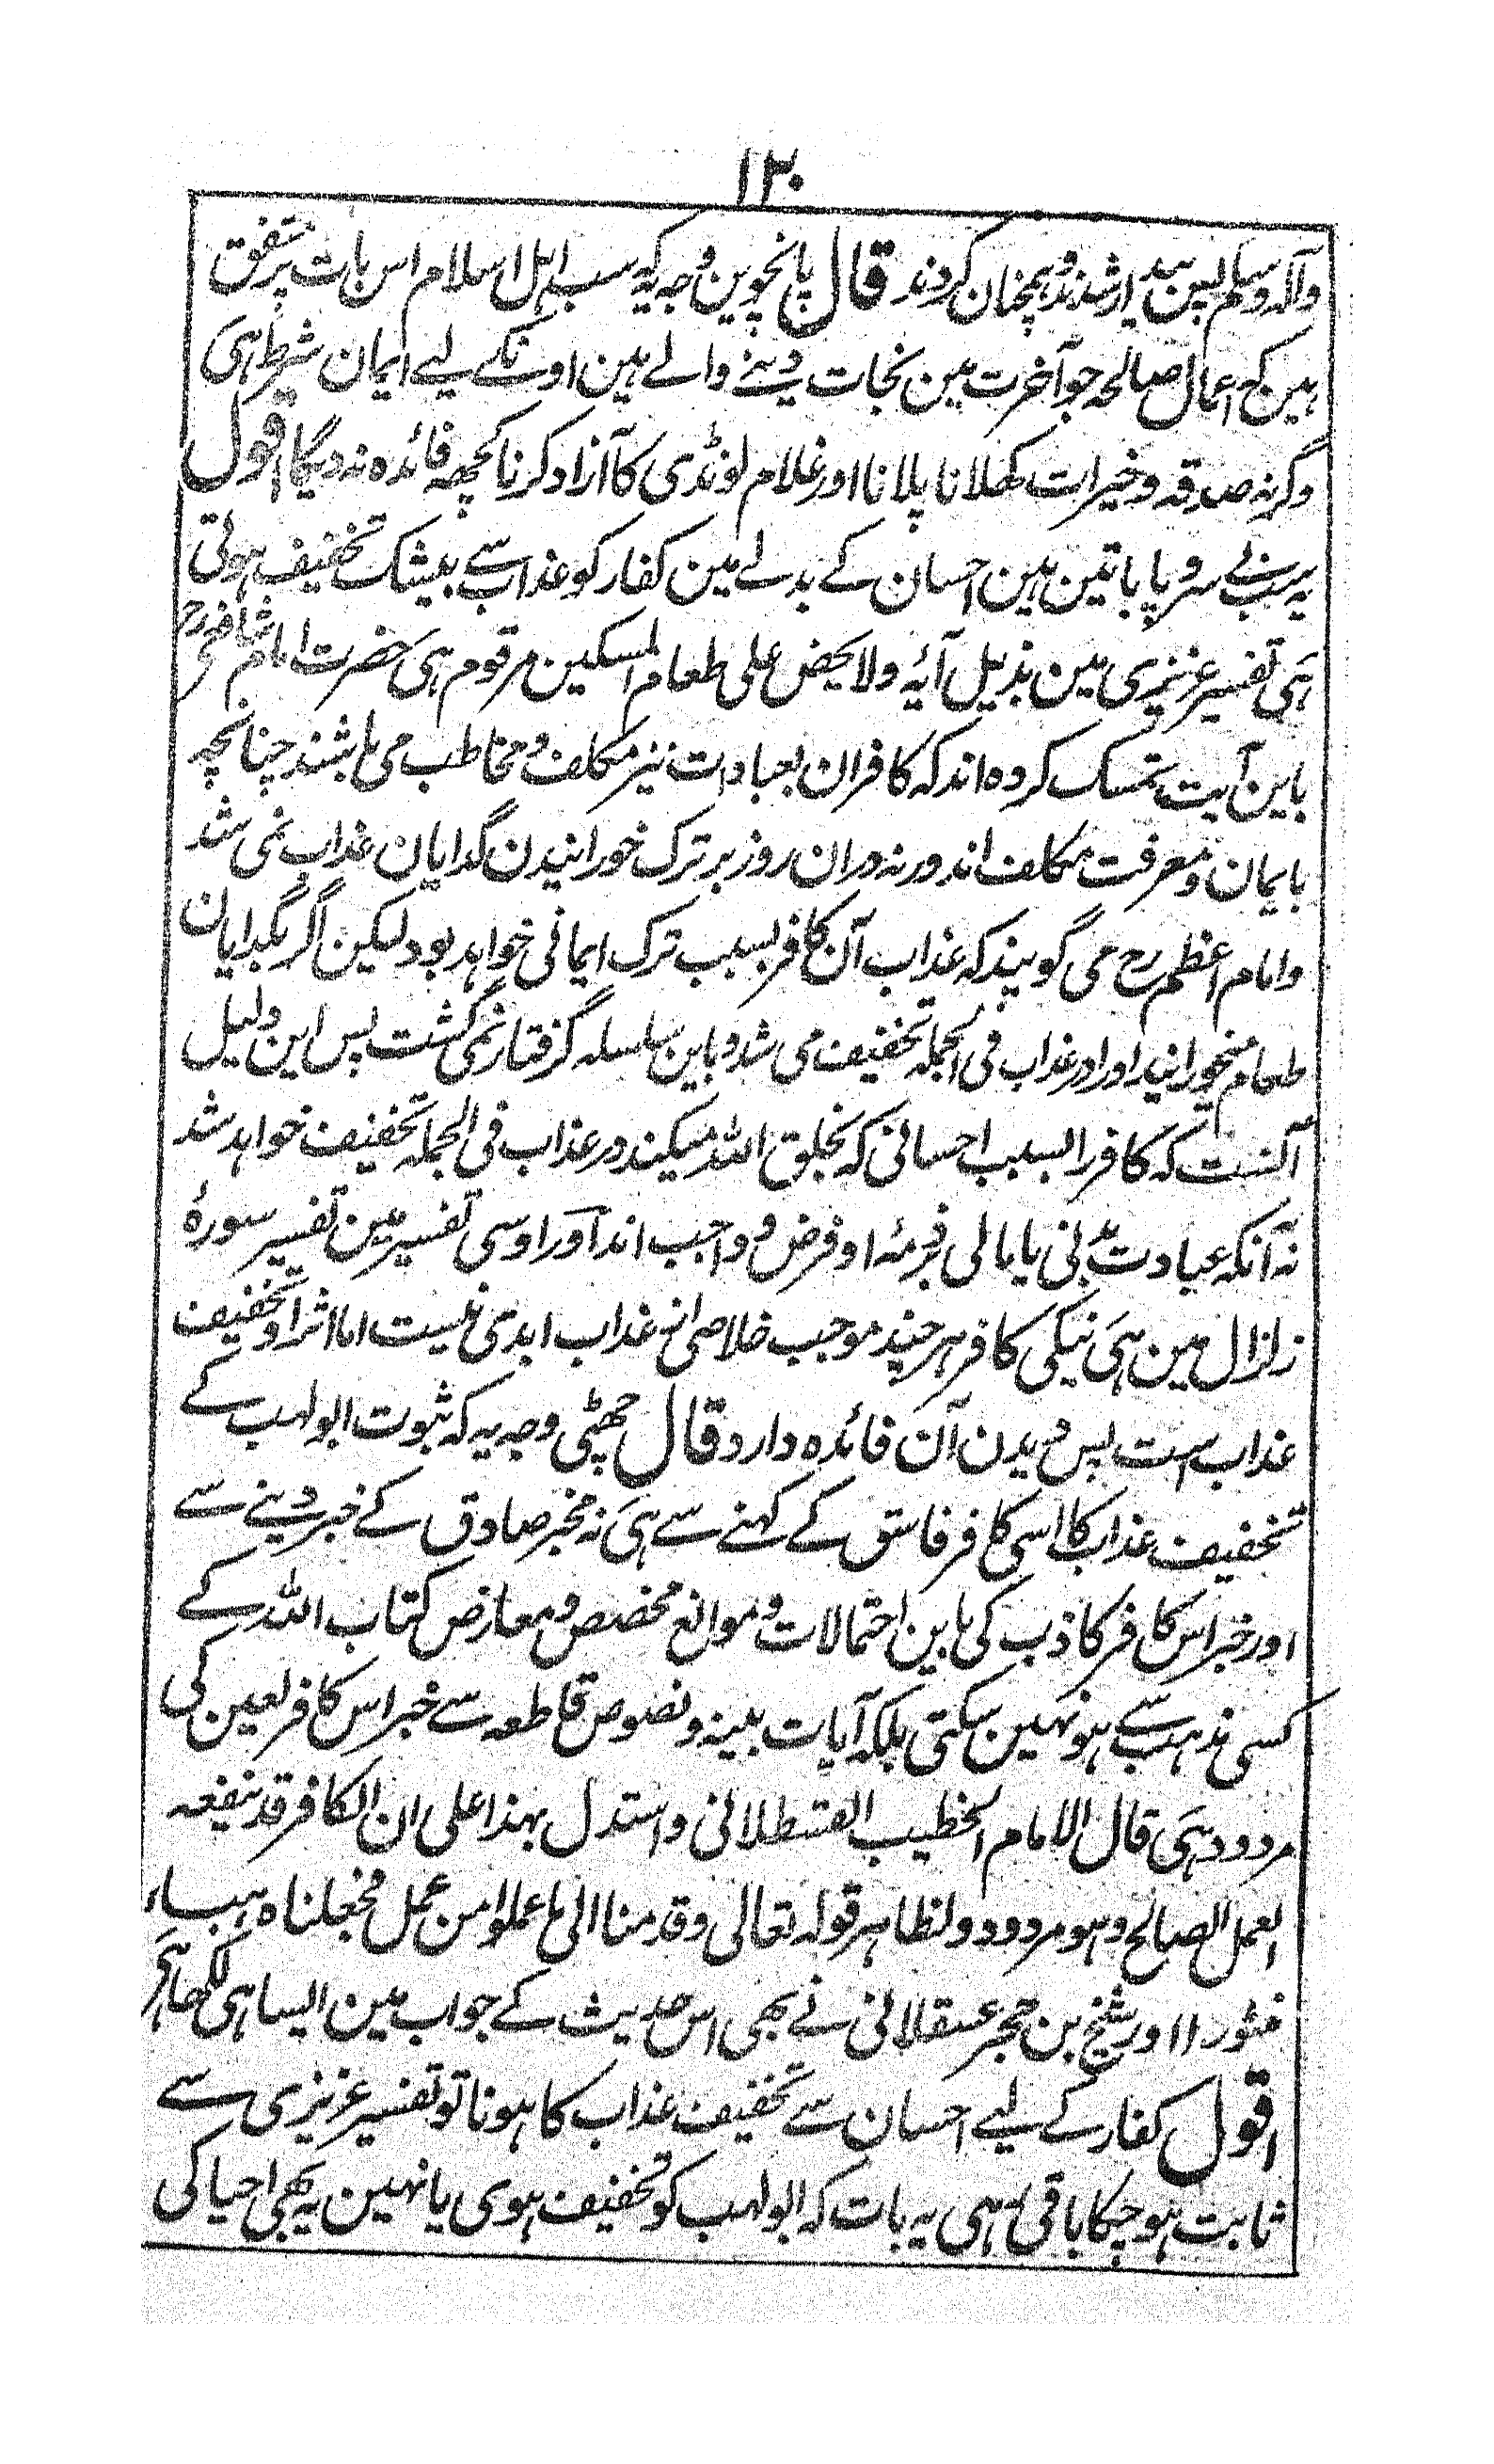 ۱۳۰
وآلہ وسلم پس بیدار شدند و ہمچنان کردند قال پانچوین وجہ یہ کہ سب اہل اسلام اس بات پر متفق
ہین کہ اعمال صالحہ جو آخرت مین نجات دینے والے ہین اونکے لیے ایمان شرط ہی
وگرنہ صدقہ وخیرات کھلانا پلانا اور غلام لونڈی کا آزاد کرنا کچھہ فائدہ نہ دیگا اقول
یہ سب بے سر و پا باتین ہین احسان کے بدلے مین کفار کو عذاب سے بیشک تخفیف ہوتی
ہی تفسیر عزیزی مین بذیل آیۂ ولا یحض علی طعام المسکین مرقوم ہی حضرت امام شافعی رح
باین آیت تمسک کردہ اند کہ کافران بعبادات نیز مکلف و مخاطب می باشند چنانچہ
بایمان و معرفت مکلف اند ورنہ دران روز بر ترک خورانیدن گدایان عذاب نمی شد
وامام اعظم رح می گویند کہ عذاب آن کافر بسبب ترک ایمانی خواہد بود لیکن اگر بگدایان
طعام میخورانید اورا در عذاب فی الجملہ تخفیف می شد و باین سلسلہ گرفتار نمی گشت پس این دلیل
آنست کہ کافر را بسبب احسانی کہ بخلق اللہ میکند در عذاب فی الجملہ تخفیف خواہد شد
نہ آنکہ عبادت بدنی یا مالی بذمۂ او فرض و واجب اند اور اوسی تفسیر مین تفسیر سورۂ
زلزال مین ہی نیکی کافر ہر چند موجب خلاصی از عذاب ابدی نیست اما اثر او تخفیف
عذاب است پس دیدن آن فائدہ دارد قال چھٹی وجہ یہ کہ ثبوت ابو لہب کے
تخفیف عذاب کا اسی کافر فاسق کے کہنے سے ہی نہ مخبر صادق کے خبر دینے سے
اور خبر اس کافر کاذب کی باین احتمالات و موانع مخصص و معارض کتاب اللہ کے
کسی مذہب سے ہو نہین سکتی بلکہ آیات بینہ و نصوص قاطعہ سے خبر اس کافر لعین کی
مردود ہی قال الامام الخطیب القسطلانی واستدل بہذا علی ان الکافر قد ینفعہ
العمل الصالح وہو مردود ولظاہر قولہ تعالی وقدمنا الی ما عملوا من عمل فجعلناہ ہباء
منثورا ۱۱ ور شیخ بن حجر عسقلانی نے بھی اس حدیث کے جواب مین ایسا ہی لکھا ہی
اقول کفار کے لیے احسان سے تخفیف عذاب کا ہونا تو تفسیر عزیزی سے
ثابت ہو چکا باقی رہی یہ بات کہ ابو لہب کو تخفیف ہوی یا نہین یہ بھی احیا کی